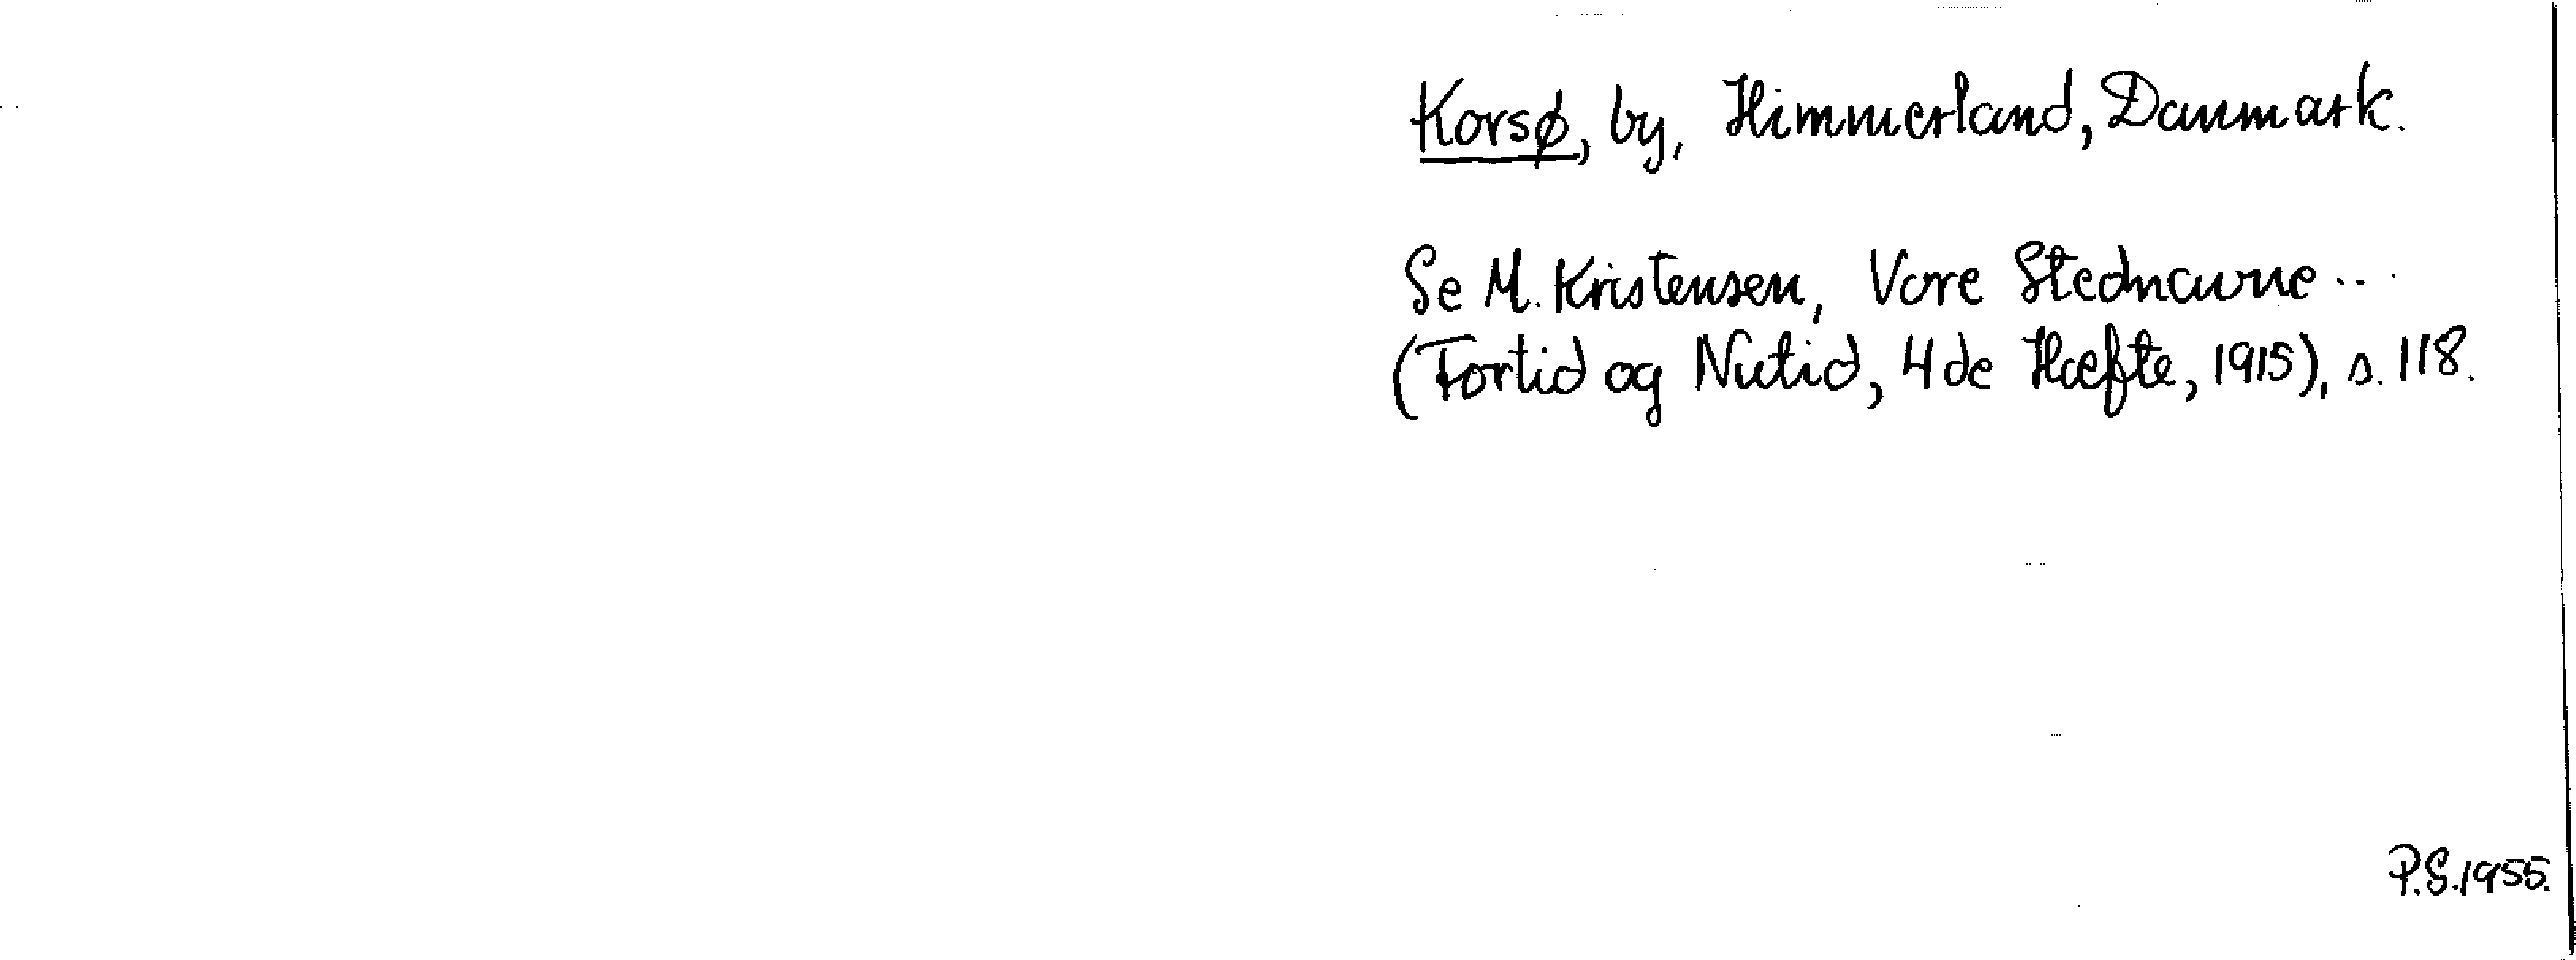 Korsø, by, Himmerland, Danmark.
Se M. Kristensen, Vore Stednavne...
(Fortid og Nutid, 4de Hæfte, 1915), s. 118.
P.S. 1955.